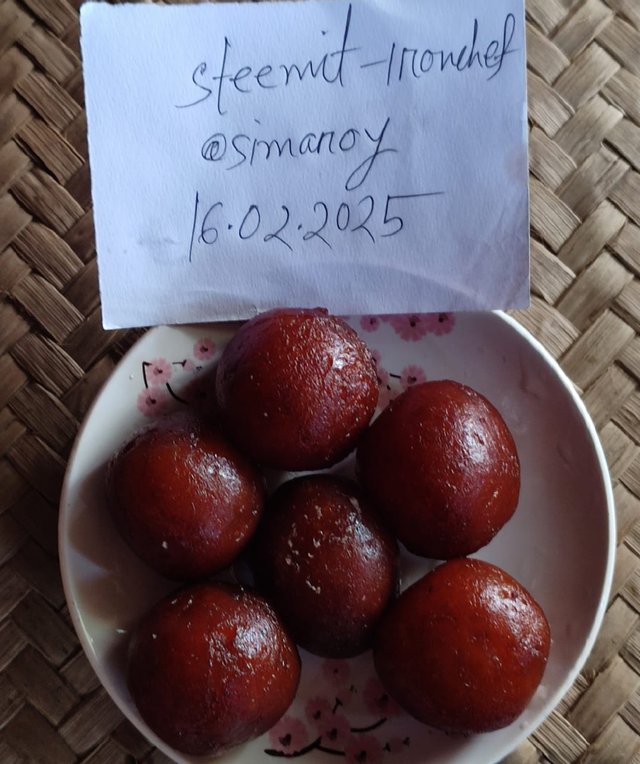 steemit-ironchef
@simaroy
16.02.2025